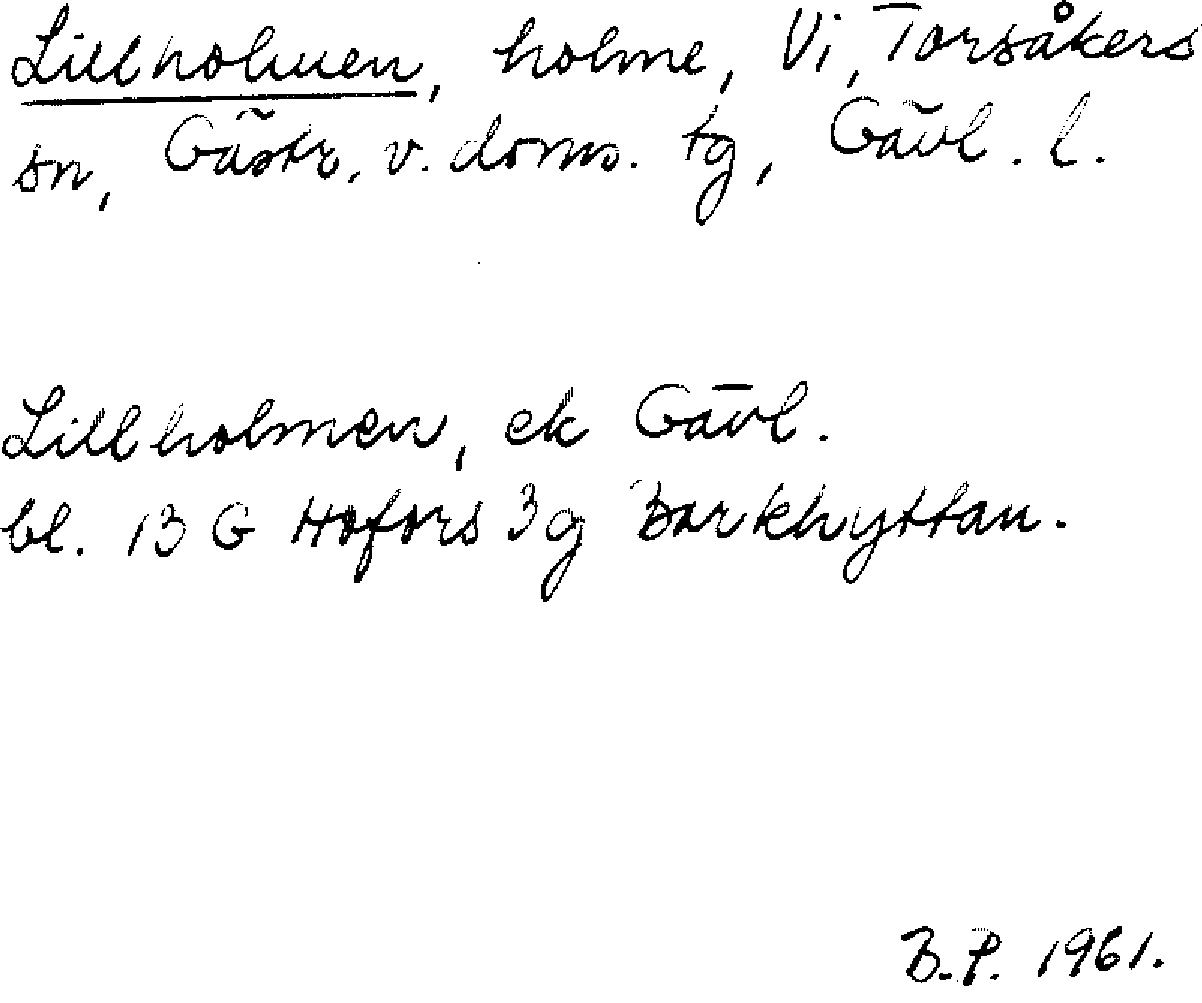 Lillholmen, holme, Vi, Torsåkers
sn, Gästr. v. doms. tg, Gävl. l.
Lillholmen, ek Gävl.
bl. 13 G Hofors 3g Barkhyttan.
B.P. 1961.